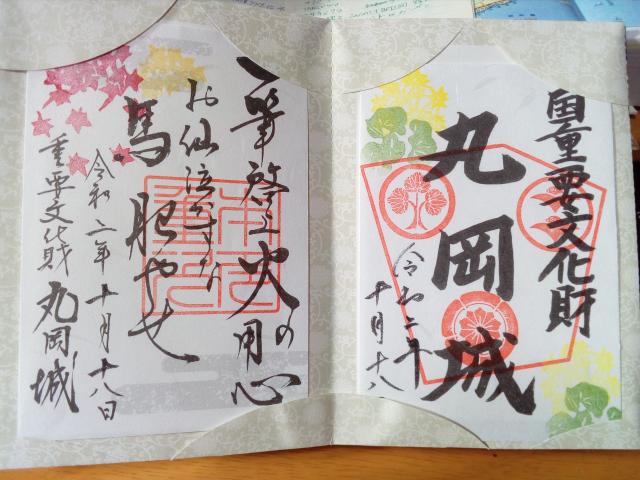 国重要文化財
丸岡城
令和二年
十月十八
一筆啓上火の用心
お仙泣かすな
馬肥やせ
令和二年十月十八日
重要文化財 丸岡城